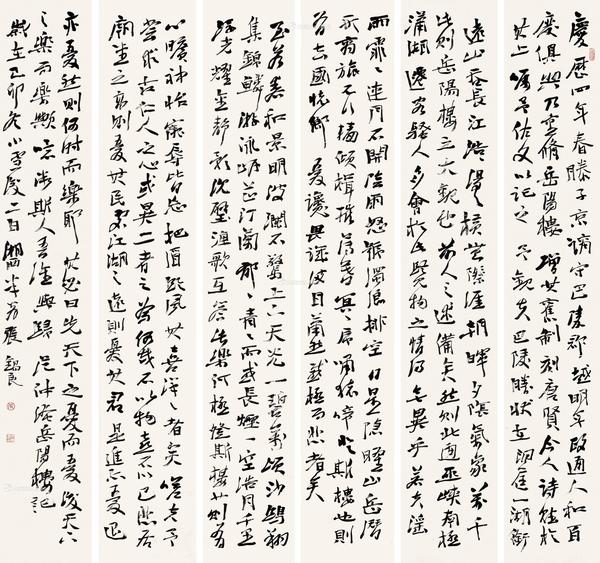 慶歷四年春滕子京謫守巴陵郡越明年政通人和百
廢俱興乃重脩岳陽樓增其舊制刻唐賢今人詩賦於
其上囑予作文以記之予觀夫巴陵勝狀在洞庭一湖銜
遠山吞長江浩浩湯湯橫無際涯朝暉夕陰氣象萬千
此則岳陽樓之大觀也前人之述備矣然則北通巫峽南極
瀟湘遷客騷人多會於此覽物之情得無異乎若夫淫
雨霏〻連月不開陰風怒號濁浪排空日星隱曜山岳潛
形商旅不行檣傾楫摧薄暮冥〻虎嘯猿啼登斯樓也則
有去國懷鄉憂讒畏譏滿目蕭然感極而悲者矣
至若春和景明波瀾不驚上下天光一碧萬頃沙鷗翔
集錦鱗游泳岸芷汀蘭郁〻青〻而或長煙一空皓月千里
浮光耀金靜影沉璧漁歌互答此樂何極登斯樓也則有
心曠神怡寵辱皆忘把酒臨風其喜洋〻者矣嗟夫予
嘗求古仁人之心或異二者之為何哉不以物喜不以己悲居
廟堂之高則憂其民處江湖之遠則憂其君是進亦憂退
亦憂然則何時而樂耶其必曰先天下之憂而憂後天下
之樂而樂歟噫微斯人吾誰與歸范仲淹岳陽樓記
歲在己卯冬小雪後二日